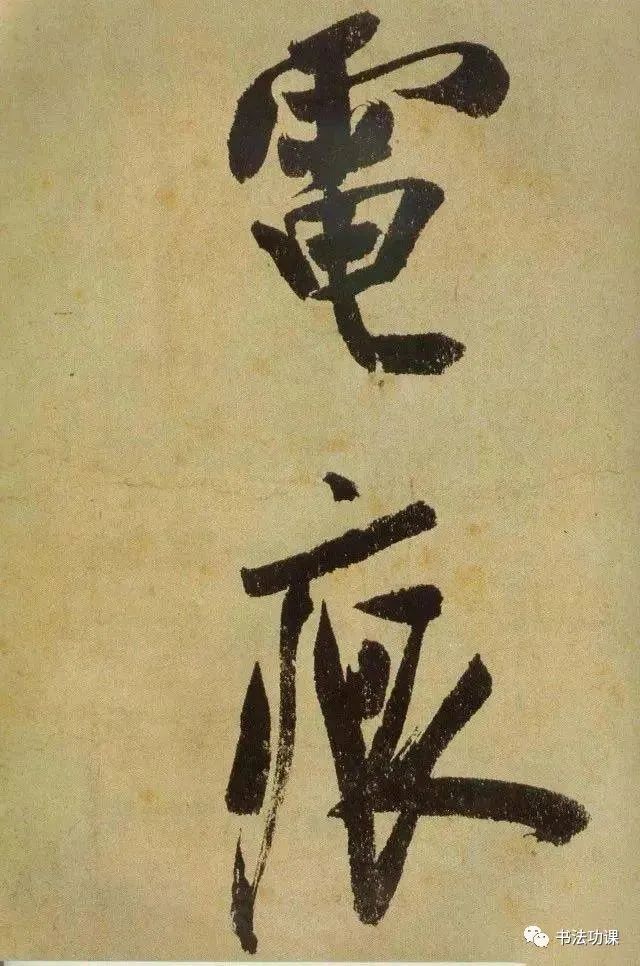 電
痕
书法功课